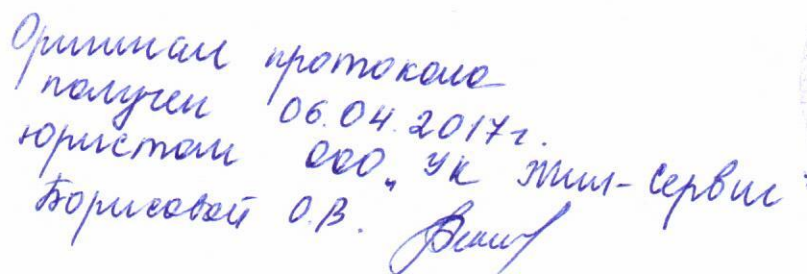 Оригинал протокола
получен 06.04.2017г.
юристом ООО „УК Жил-Сервис"
Борисовой О.В.